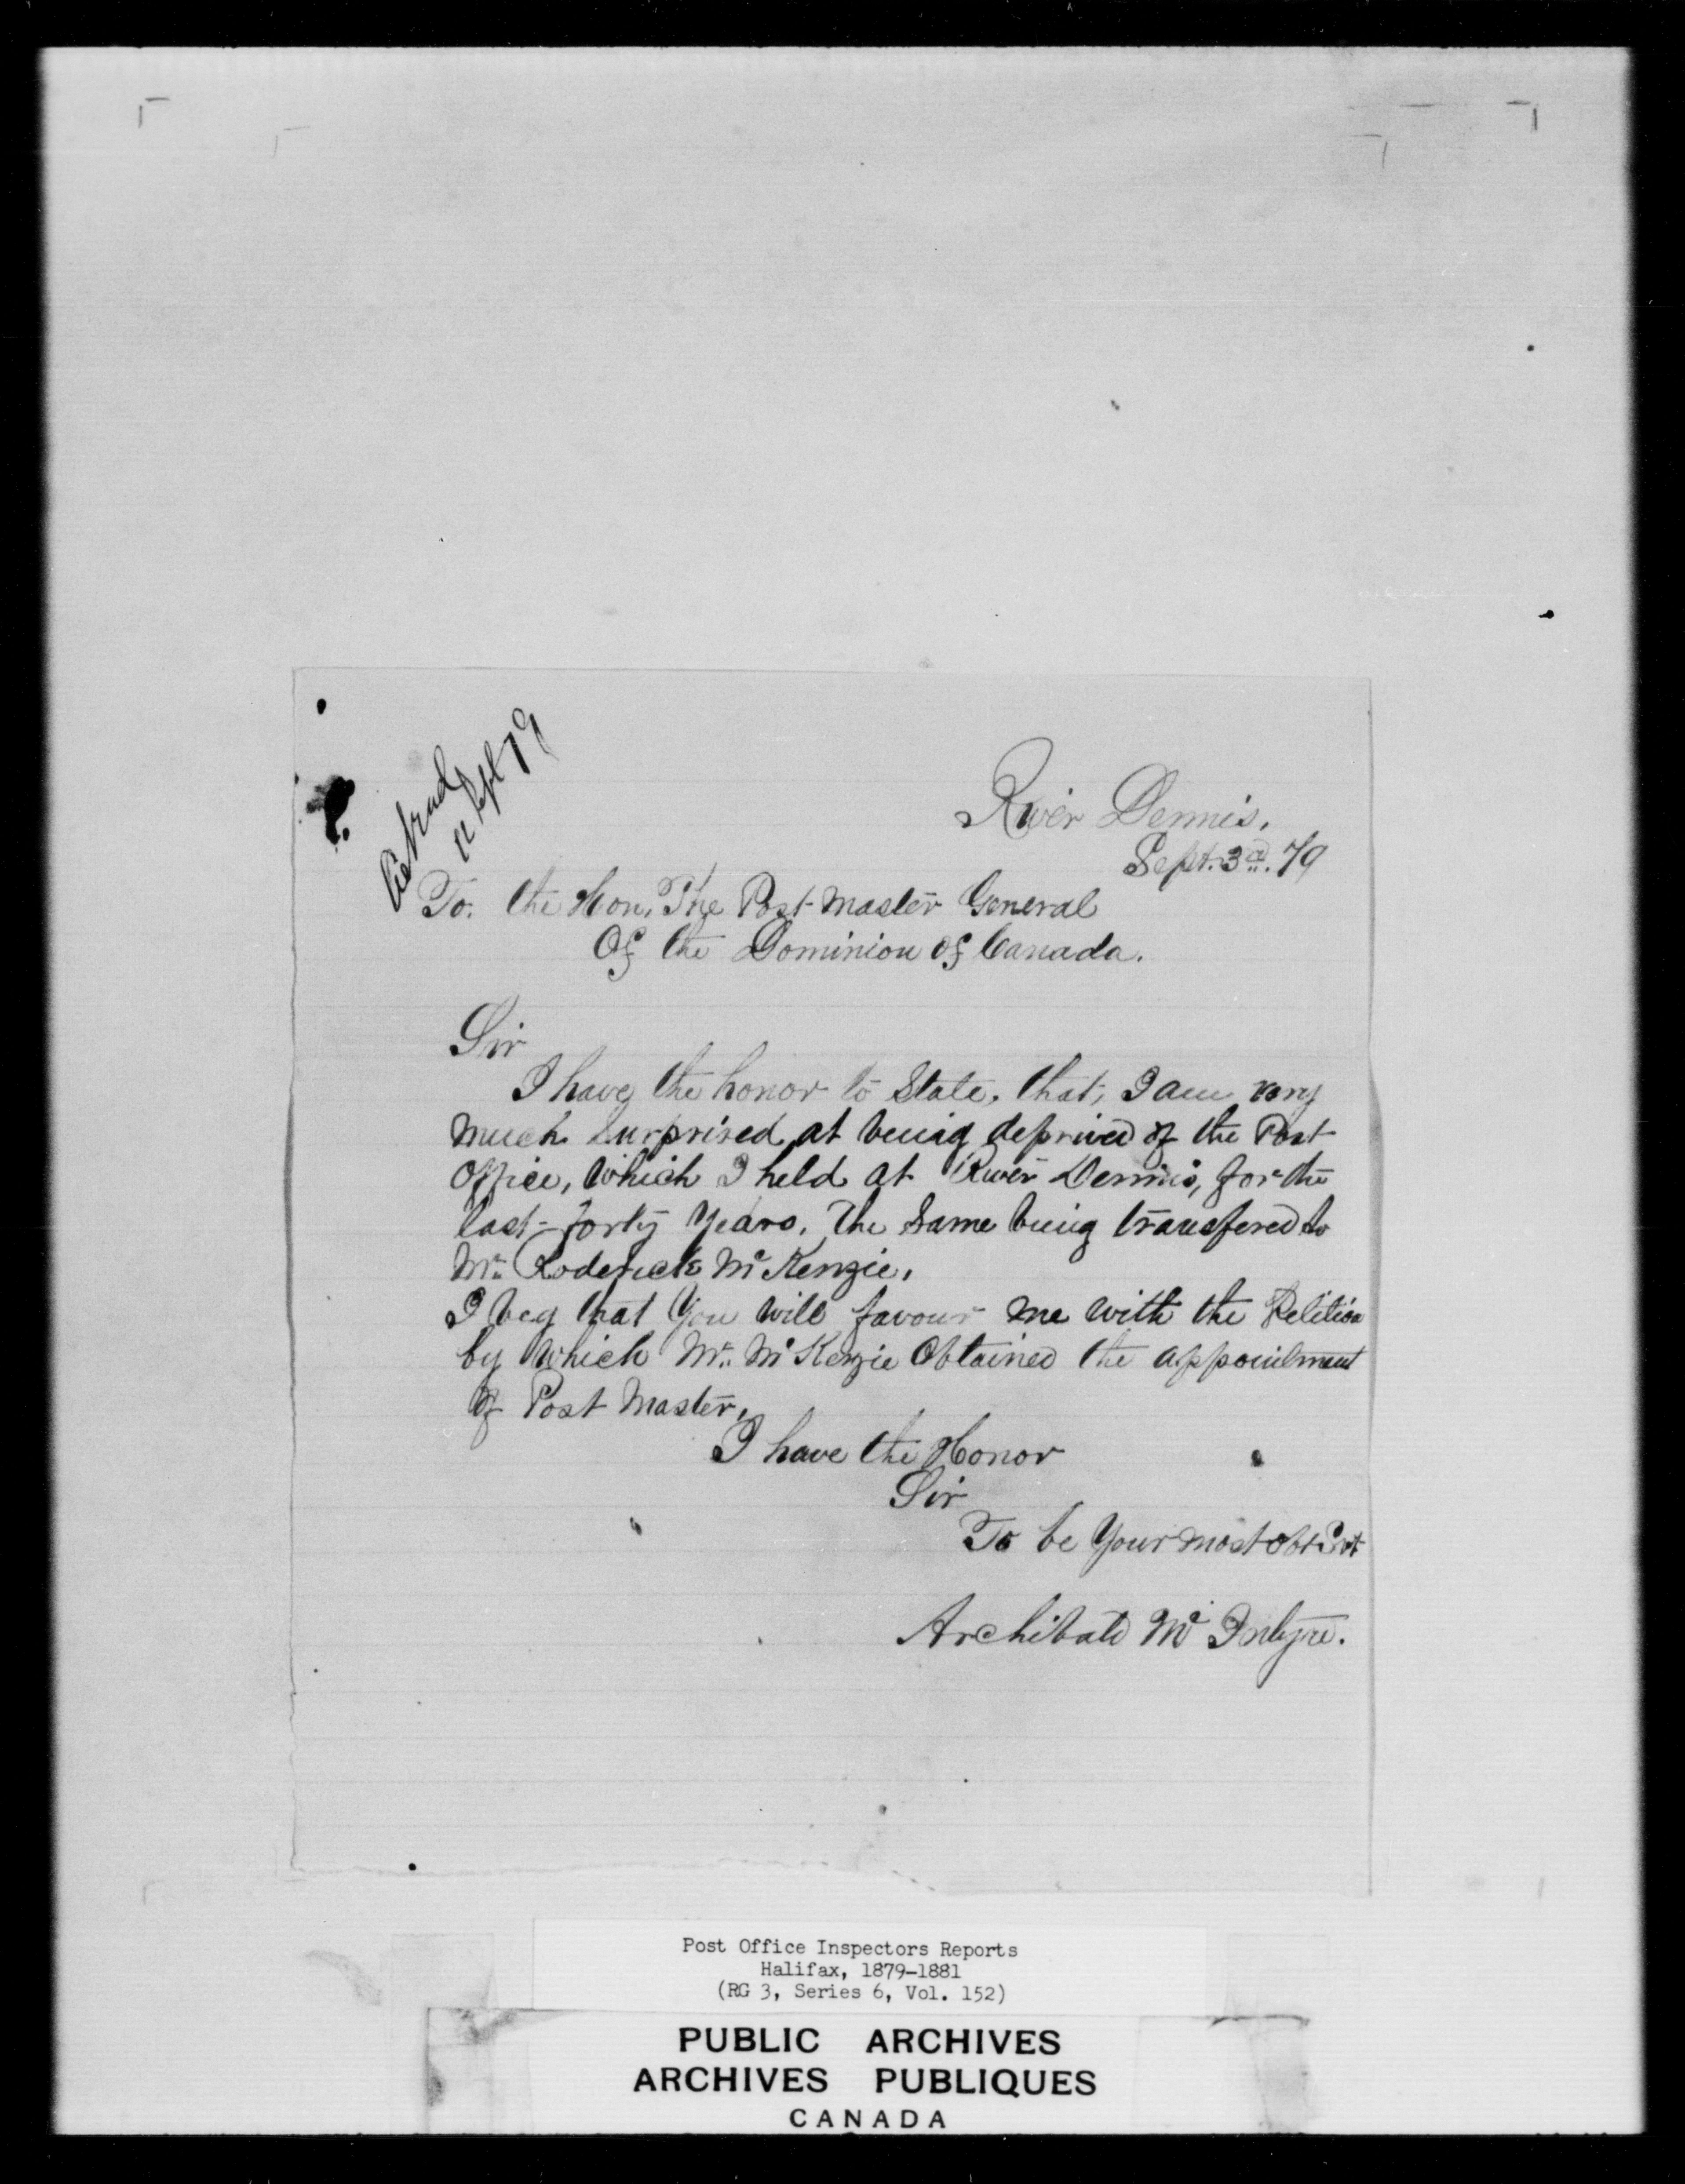 11 Sept 79
River Dennis,
Sept. 3d. 79
To. the Hon. The Post Master General
Of the Dominion of Canada.
Sir
I have the honor to State, that, I am very
much surprised at being deprived of the Post
Office, Which I held at River Dennis, for the
last forty Years. The Same being transfered to
Mr. Roderick McKenzie,
I beg that You will favour me with the Petition
by Which Mr. McKenzie Obtained the appointment
of Post Master,
I have the Honor
Sir
To be Your most Obt Svt
Archibald Mc Intyre.
Post Office Inspectors Reports
Halifax, 1879-1881
(RG 3, Series 6, Vol. 152)
PUBLIC ARCHIVES
ARCHIVES PUBLIQUES
CANADA